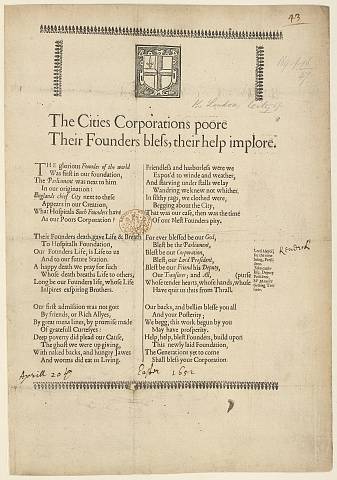 43
The Cities Corporations poore
Their Founders bless, their help implore.
THE glorious Founder of the world
Was first in our foundation,
The Parliament was next to him
In our origination:
Englands chief City next to these
Appears in our Creation,
What Hospitals Such Founders have
As our Poors Corporation?
Their Founders death, gave Life & Breath
To Hospitalls Foundation,
Our Founders Life, is Life to us
And to our future Station.
A happy death we pray for such
Whose death breaths Life to others,
Long be our Founders life, whose Life
Inspires exspiring Brothers.
Our first admission was not got
By friends, or Rich Allyes,
By great mens love, by promise made
Of gratefull Sacrifice:
Deep poverty did plead our Cause,
The ghost we were up giving,
With naked backs, and hungry Jawes
And worms did eat us Living.
Friendless and harborless were we
Expos'd to winde and weather,
And starving under stalls we lay
Wandring we knew not whither.
In filthy rags, we clothed were,
Begging about the City;
That was our case, then was the time
Of our Nest Founders pity.
For ever blessed be our God,
Blest be the Parliament,
Blest be our Corporation,
Blest, our Lord President,
Blest be our Friend his Deputy,
Our Treasurer; and All,
Whose tender hearts, whose hands, whose (purse
Have quit us thus from Thrall.
Our backs, and bellies blesse you all
And your Posterity;
We begg, this work begun by you
May have prosperity.
Help, help, blest Founders, build upon
This newly laid Foundation,
The Generations yet to come
Shall bless your Corporation.
Aprill 20
Easter 1652